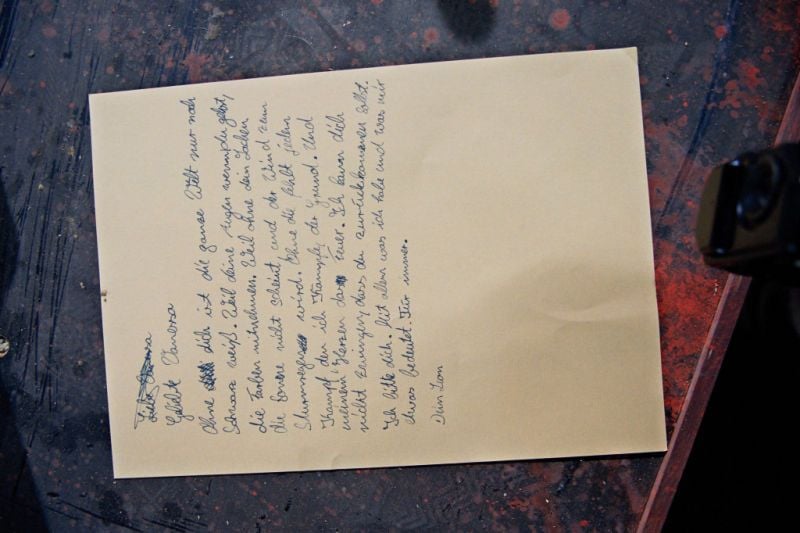 Geliebte Vanessa
Ohne dich ist die ganze Welt nur noch
Schwarz weiß. Weil deine Augen wenn du gehst,
die Farben mitnehmen. Weil ohne dein Lachen
die Sonne nicht scheint, und der Wind zum
Sturm wird. Ohne die fehlt jedem
Kampf den ich Kämpfe, der Grund. Und
meinem Herzen das Feuer. Ich kann dich
nicht zwingen, dass du zurückkommen sollst.
Ich bitte dich. Mit allem was ich habe und was mir
etwas bedeutet. Für immer.
Dein Leon